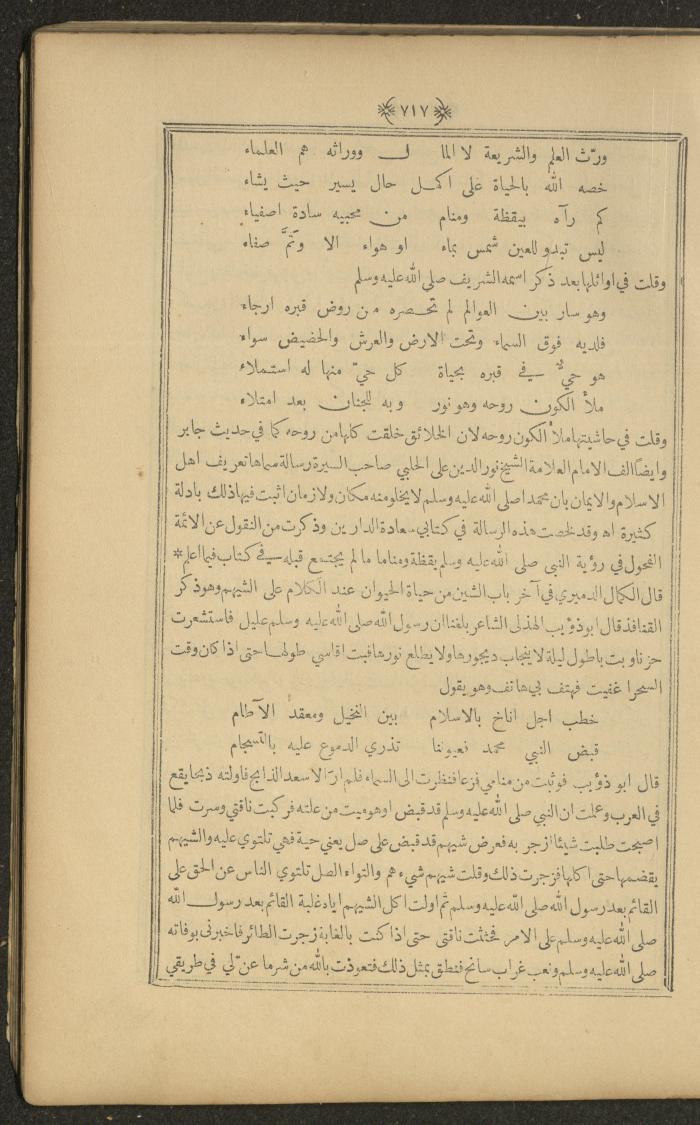 ﴿٧١٧﴾
ورّث العلم والشريعة لا الما ل ووراثه هم العلماء
خصه الله بالحياة على اكمل حال يسير حيث يشاء
كم رآه بيقظة ومنام من محبيه سادة اصفياء
ليس تبدو للعين شمس بماء او هواء الا وثمَّ صفاء
وقلت في اوائلها بعد ذكر اسمه الشريف صلى الله عليه وسلم
وهو سار بين العوالم لم تحصره من روض قبره ارجاء
فلديه فوق السماء وتحت الارض والعرش والحضيض سواء
هو حيّ في قبره بحياة كل حيّ منها له استملاء
ملأ الكون روحه وهو نور وبه للجنان بعد امتلاء
وقلت في حاشيتها ملأ الكون روحه لان الخلائق خلقت كلها من روحه كما في حديث جابر
وايضا الف الامام العلامة الشيخ نور الدين على الحلبي صاحب السيرة رسالة سماها تعريف اهل
الاسلام والايمان بان محمدا صلى الله عليه وسلم لا يخلو منه مكان ولا زمان اثبت فيها ذلك بادلة
كثيرة اه وقد لخصت هذه الرسالة في كتابي سعادة الدارين وذكرت من النقول عن الائمة
الفحول في رؤية النبي صلى الله عليه وسلم يقظة ومناما ما لم يجتمع قبله في كتاب فيما اعلم *
قال الكمال الدميري في آخر باب الشين من حياة الحيوان عند الكلام على الشيهم وهو ذكر
القنافذ قال ابو ذؤيب الهذلى الشاعر بلغنا ان رسول الله صلى الله عليه وسلم عليل فاستشعرت
حزنا وبت باطول ليلة لا ينجاب ديجورها ولا يطلع نورها فبت اقاسي طولها حتى اذا كان وقت
السحر اغفيت فهتف بي هاتف وهو يقول
خطب اجل اناخ بالاسلام بين النخيل ومعقد الآطام
قبض النبي محمد فعيوننا تذري الدموع عليه بالتسجام
قال ابو ذؤيب فوثبت من منامي فزعا فنظرت الى السماء فلم ار الا سعد الذابح فاولته ذبحا يقع
في العرب وعلمت ان النبي صلى الله عليه وسلم قد قبض او هو ميت من علته فركبت ناقتي وسرت فلما
اصبحت طلبت شيئا ازجر به فعرض شيهم قد قبض على صل يعني حية فهي تلتوي عليه والشيهم
يقضمها حتى اكلها فزجرت ذلك وقلت شيهم شيء هم والتواء الصل تلتوي الناس عن الحق على
القائم بعد رسول الله صلى الله عليه وسلم ثم اولت اكل الشيهم اياه غلبة القائم بعد رسول الله
صلى الله عليه وسلم على الامر فحثثت ناقتي حتى اذا كنت بالغابة زجرت الطائر فاخبرنى بوفاته
صلى الله عليه وسلم ونعب غراب سانح فنطق بمثل ذلك فتعوذت بالله من شر ما عنّ لي في طريقي